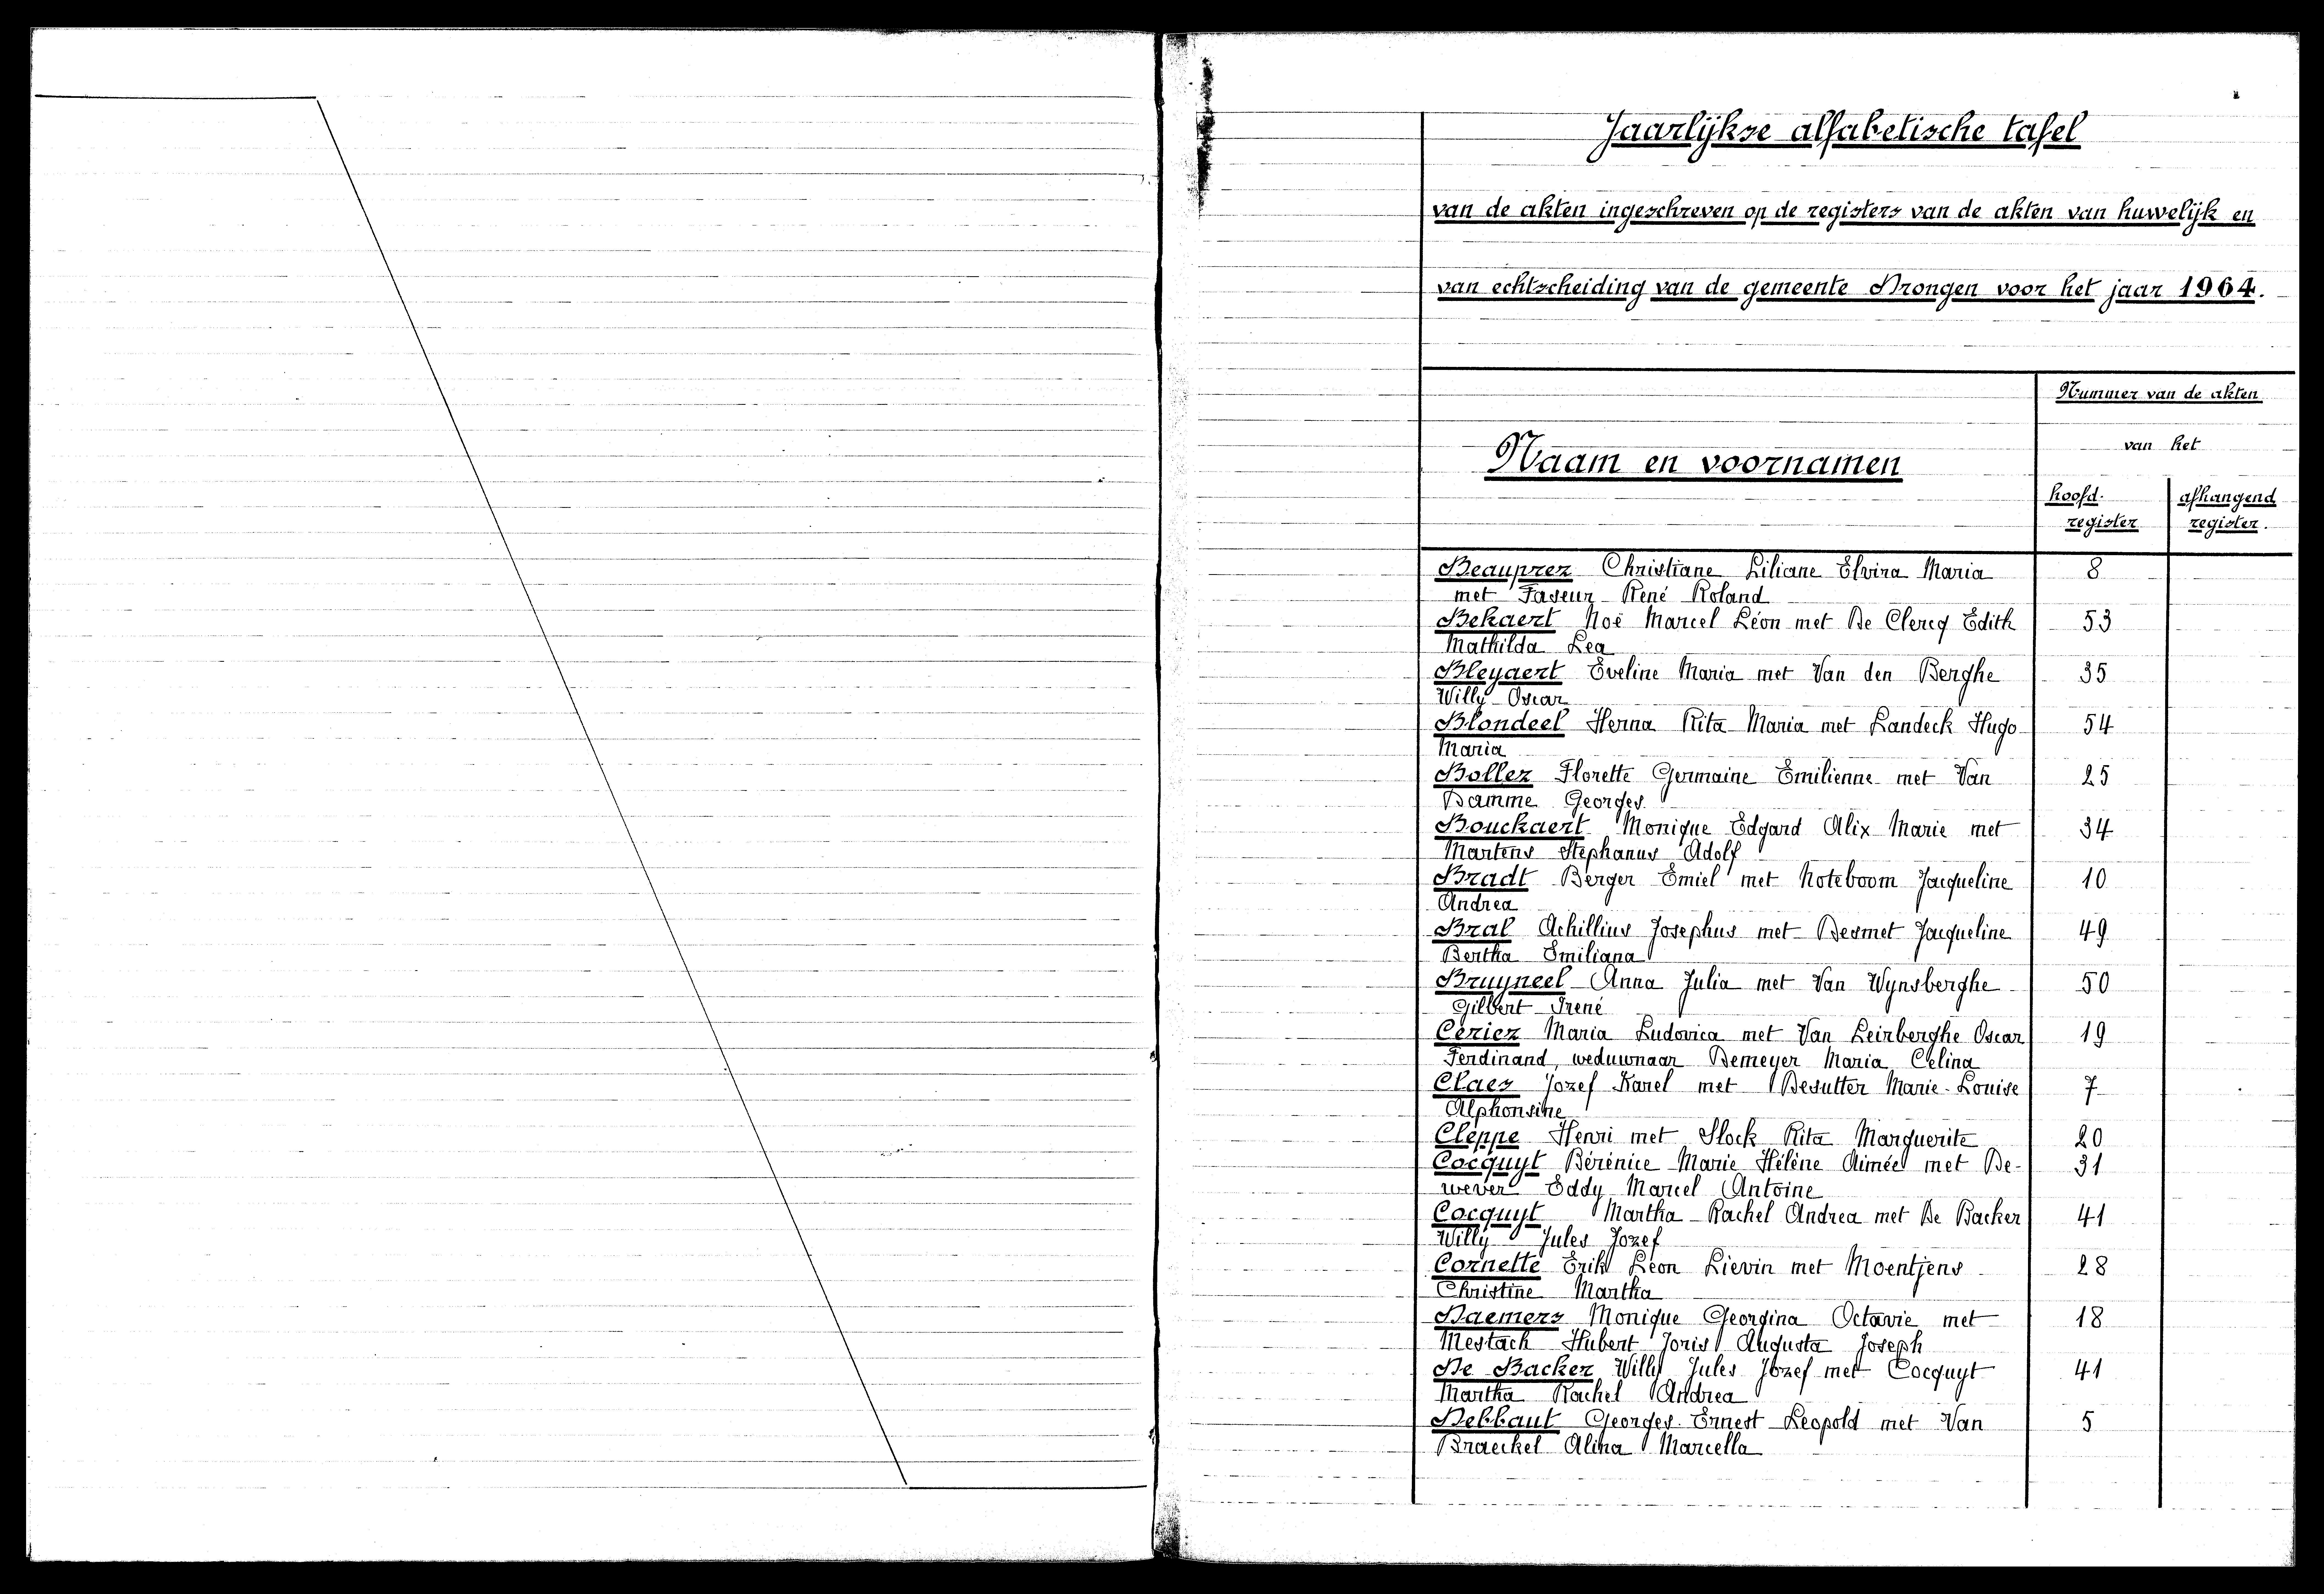 Jaarlijkse alfabetische tafel
van de akten ingeschreven op de registers van de akten van huwelijk en
van echtscheiding van de gemeente Drongen voor het jaar 1964.
Nummer van de akten
van het
Naam en voornamen
hoofd- afhangend
register register.
Beauprez Christiane Liliane Elvira Maria 8
met Faseur René Roland
Bekaert Noë Marcel Léon met De Clercq Edith 53
Mathilda Lea
Bleyaert Eveline Maria met Van den Berghe 35
Willy Oscar
Blondeel Herna Rita Maria met Landeck Hugo 54
Maria
Bollez Florette Germaine Emilienne met Van 25
Damme Georges
Bouckaert Monique Edgard Alix Marie met 34
Martens Stephanus Adolf
Bradt Berger Emiel met Noteboom Jacqueline 10
Andrea
Bral Achillius Josephus met Desmet Jacqueline 49
Bertha Emiliana
Bruyneel Anna Julia met Van Wynsberghe 50
Gilbert Irené
Ceriez Maria Ludovica met Van Leirberghe Oscar 19
Ferdinand, weduwnaar Demeyer Maria Celina
Claes Jozef Karel met Desutter Marie-Louise 7
Alphonsine
Cleppe Henri met Slock Rita Marguerite 20
Cocquyt Bérénice Marie Hélène Aimée met De- 31
wever Eddy Marcel Antoine
Cocquyt Martha Rachel Andrea met De Backer 41
Willy Jules Jozef
Cornette Erik Léon Lievin met Moentjens 28
Christine Martha
Daemers Monique Georgina Octavie met 18
Mestach Hubert Joris Augusta Joseph
De Backer Willy Jules Jozef met Cocquyt 41
Martha Rachel Andrea
Debbaut Georges Ernest Leopold met Van 5
Braeckel Alina Marcella